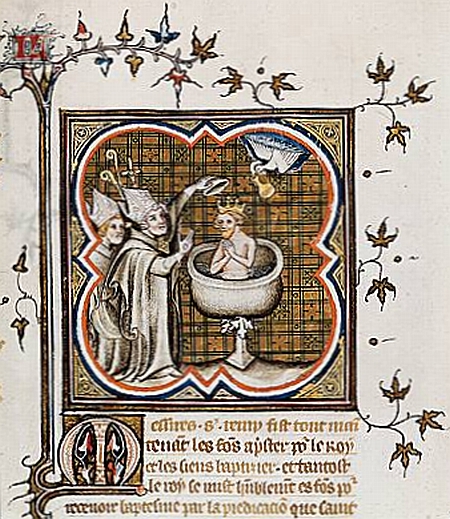 Messires .s. remy fist tout mai
tenāt les fōs apster po le Roy
et les siens baptizier. et tantost
le roy se mist hūblemēt es fōs po
recevoir baptesme par la predicaciō que saint